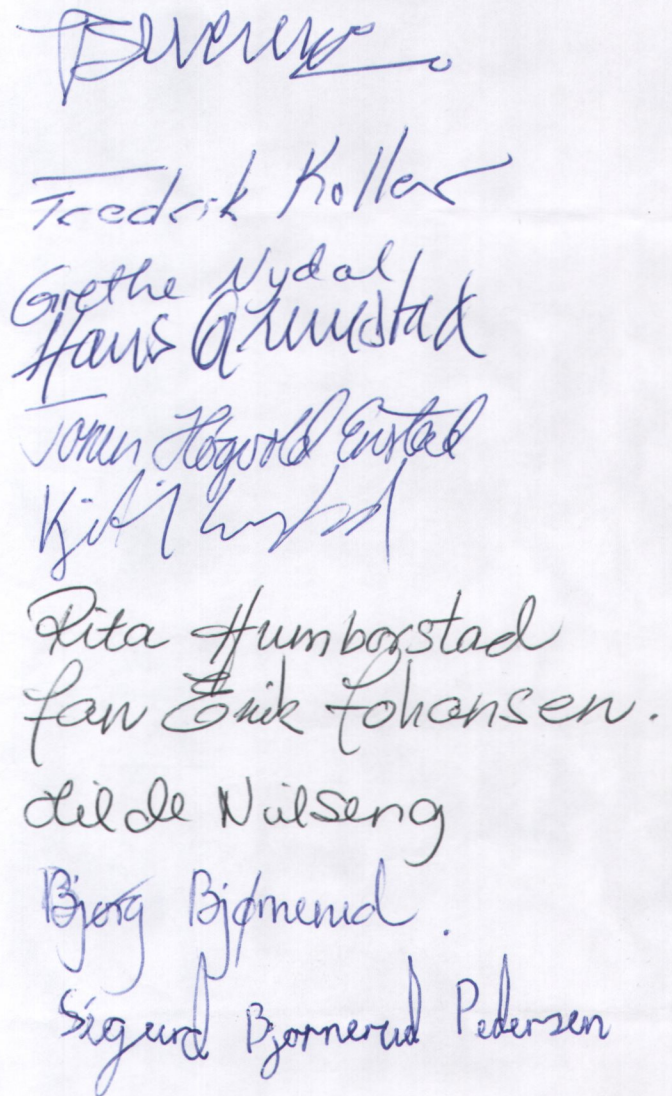 Fredrik Kollar
Grethe Nydal
Hans
Tonen Høgvold Enstad
Kjetil
Rita Humborstad
Jan Erik Johansen.
Hilde Nilseng
Bjørg Bjørnerud.
Sigurd Bjørnerud Pedersen